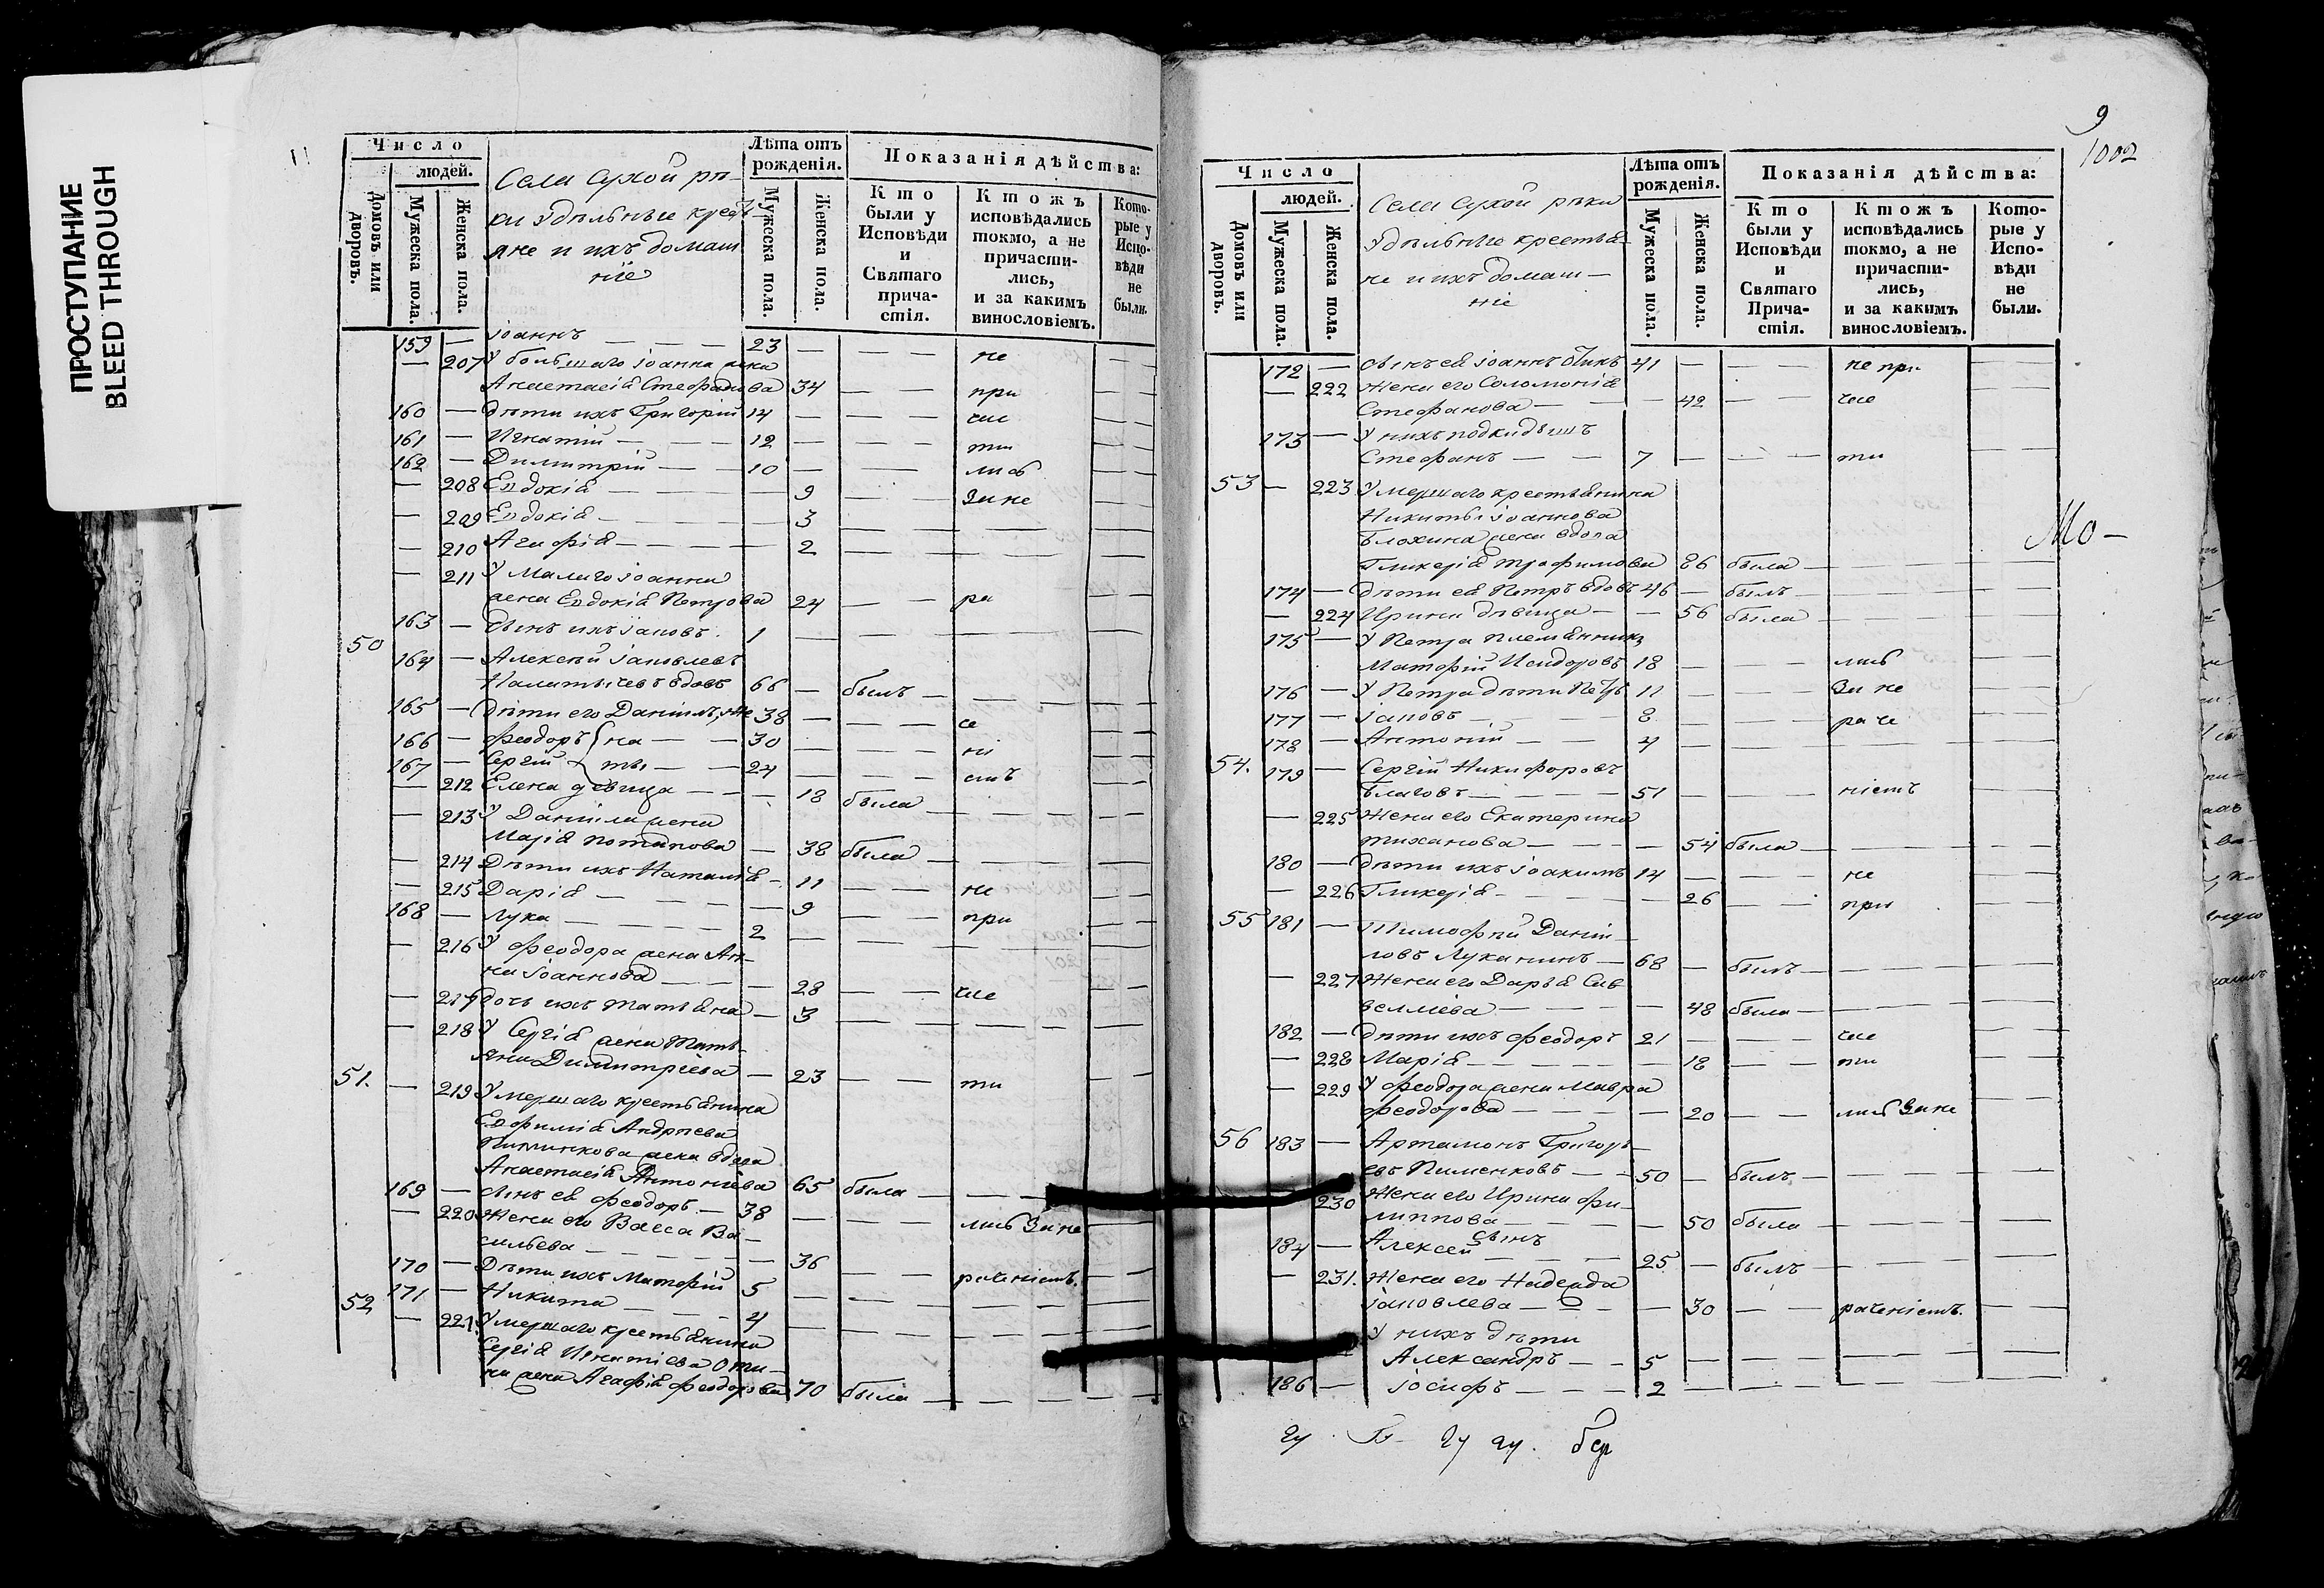 ПРОСТУПАНИЕ
BLEED THROUGH
Число
людей.
Домовъ или дворовъ.
Мужеска пола.
Женска пола.
Села Сухой рѣ-
ки удѣльные кресть-
яне и ихъ домаш
ніе
Лѣта отъ рожденія.
Мужеска пола.
Женска пола.
Показанія дѣйства:
Кто были у Исповѣди и Святаго причастія.
Ктожъ исповѣдались токмо, а не причастились, и за какимъ винословіемъ.
Которые у Исповѣди не были.
159 — Іоаннъ — — — 23 — — — не —
— 207 У большаго Іоанна жена
Анастасія Стефанова 34 — при —
160 — Дѣти ихъ Григорій 14 — — — чис —
161 — Игнатій — — — 12 — — — ти —
162 — Димитрій — — 10 — — лись —
— 208 Евдокія — — — 9 — — За не —
— 209 Евдокія — — — 3 — — — —
— 210 Агафія — — — 2 — — — —
— 211 У Малаго Іоанна
жена Евдокія Петрова 24 — — ра —
163 — Сынъ ихъ Іаковъ. 1 — — — — —
50
164 — Алексѣй Іаковлевъ
вдовъ 66 — былъ — — —
165 — Дѣти его Даніилъ, же 38 — — — се —
166 — Феодоръ на — — 30 — — — ні —
167 — Сергій ты — — 24 — — — емъ —
— 212 Елена дѣвица — — — 18 была — — —
— 213 У Даніила жена
Марія Потапова — 38 была — — —
— 214 Дѣти ихъ Наталія — 11 — — не —
— 215 Дарія — — — — 9 — — при —
168 — Лука — — — 2 — — — — —
— 216 У Феодора жена Ан-
на Іоаннова — — — 28 — — чис —
— 217 дочь ихъ Татьяна — 3 — — — —
— 218 У Сергія жена Тать-
яна Димитріева — 23 — — ти —
51. — 219 Умершаго крестьянина
Евфимія Андрѣева
жена вдова
Анастасія Антоніева 65 была — —
169 — сынъ ея Феодоръ. — 38 — — — лись За не —
— 220 Жена его Васса Ва-
сильева — — — — 36 — — раченіемъ. —
170 — Дѣти ихъ Матфій 5 — — — — —
171 — Никита — — — 4 — — — — —
52 — 221. Умершаго крестьянина
Сергія Игнатіева
жена Агафія Феодорова 70 была — — —
9
1002
Число
людей.
Домовъ или дворовъ.
Мужеска пола.
Женска пола.
Села Сухой рѣки
удѣльные крестья-
не и ихъ домаш —
ніе
Лѣта отъ рожденія.
Мужеска пола.
Женска пола.
Показанія дѣйства:
Кто были у Исповѣди и Святаго Причастія.
Ктожъ исповѣдались токмо, а не причастились, и за какимъ винословіемъ.
Которые у Исповѣди не были.
172 — сынъ ея Іоаннъ 41 — — — не при —
— 222 Жена его Соломонія
Стефанова — — — 42 — — чис —
173 — У нихъ подкидышъ
Стефанъ — — 7 — — — ти —
53 — 223 Умершаго крестьянина
Никиты Іоаннова
Блохина жена вдова
Гликерія Трофимова 86 была — —
Мо —
174 — Дѣти ея Петръ вдовъ 46 — былъ — —
— 224 Ирина дѣвица — — 56 была — —
175 — У Петра племянникъ
Матфій Исидоровъ 18 — — — лись —
176 — У Петра дѣти Петръ 11 — — — За не —
177 — Іаковъ — — — 8 — — — раче —
178 — Антоній — — 4 — — — — —
54. 179 — Сергій Никифоровъ
— — — 51 — — — ніемъ —
— 225 Жена его Екатерина
Тиханова — — — 54 была — — —
180 — Дѣти ихъ Іоакимъ 14 — — — не —
— 226 Гликерія — — — 26 — — при —
55 181 — Тимофѣй Даніи-
ловъ Луканинъ — 68 — былъ — — —
— 227 Жена его Дарья Сав
веліева — — — 48 была — — —
182 — Дѣти ихъ Феодоръ 21 — — — чис —
— 228 Марія — — — — 18 — — ти —
— 229 У Феодора жена Мавра
Феодорова — — — 20 — — лись За не —
56 183 — Артамонъ Григорь-
евъ Пименковъ — — 50 — былъ — — —
230 Жена его Ирина Фи-
липпова — — — 50 была — — —
184 — Алексей сынъ — — 25 — былъ — — —
— 231. Жена его Надежда
Іаковлева — — — 30 — — раченіемъ. —
У нихъ дѣти
Александръ — — 5 — — — — —
186 — Іосифъ — — — 2 — — — — —